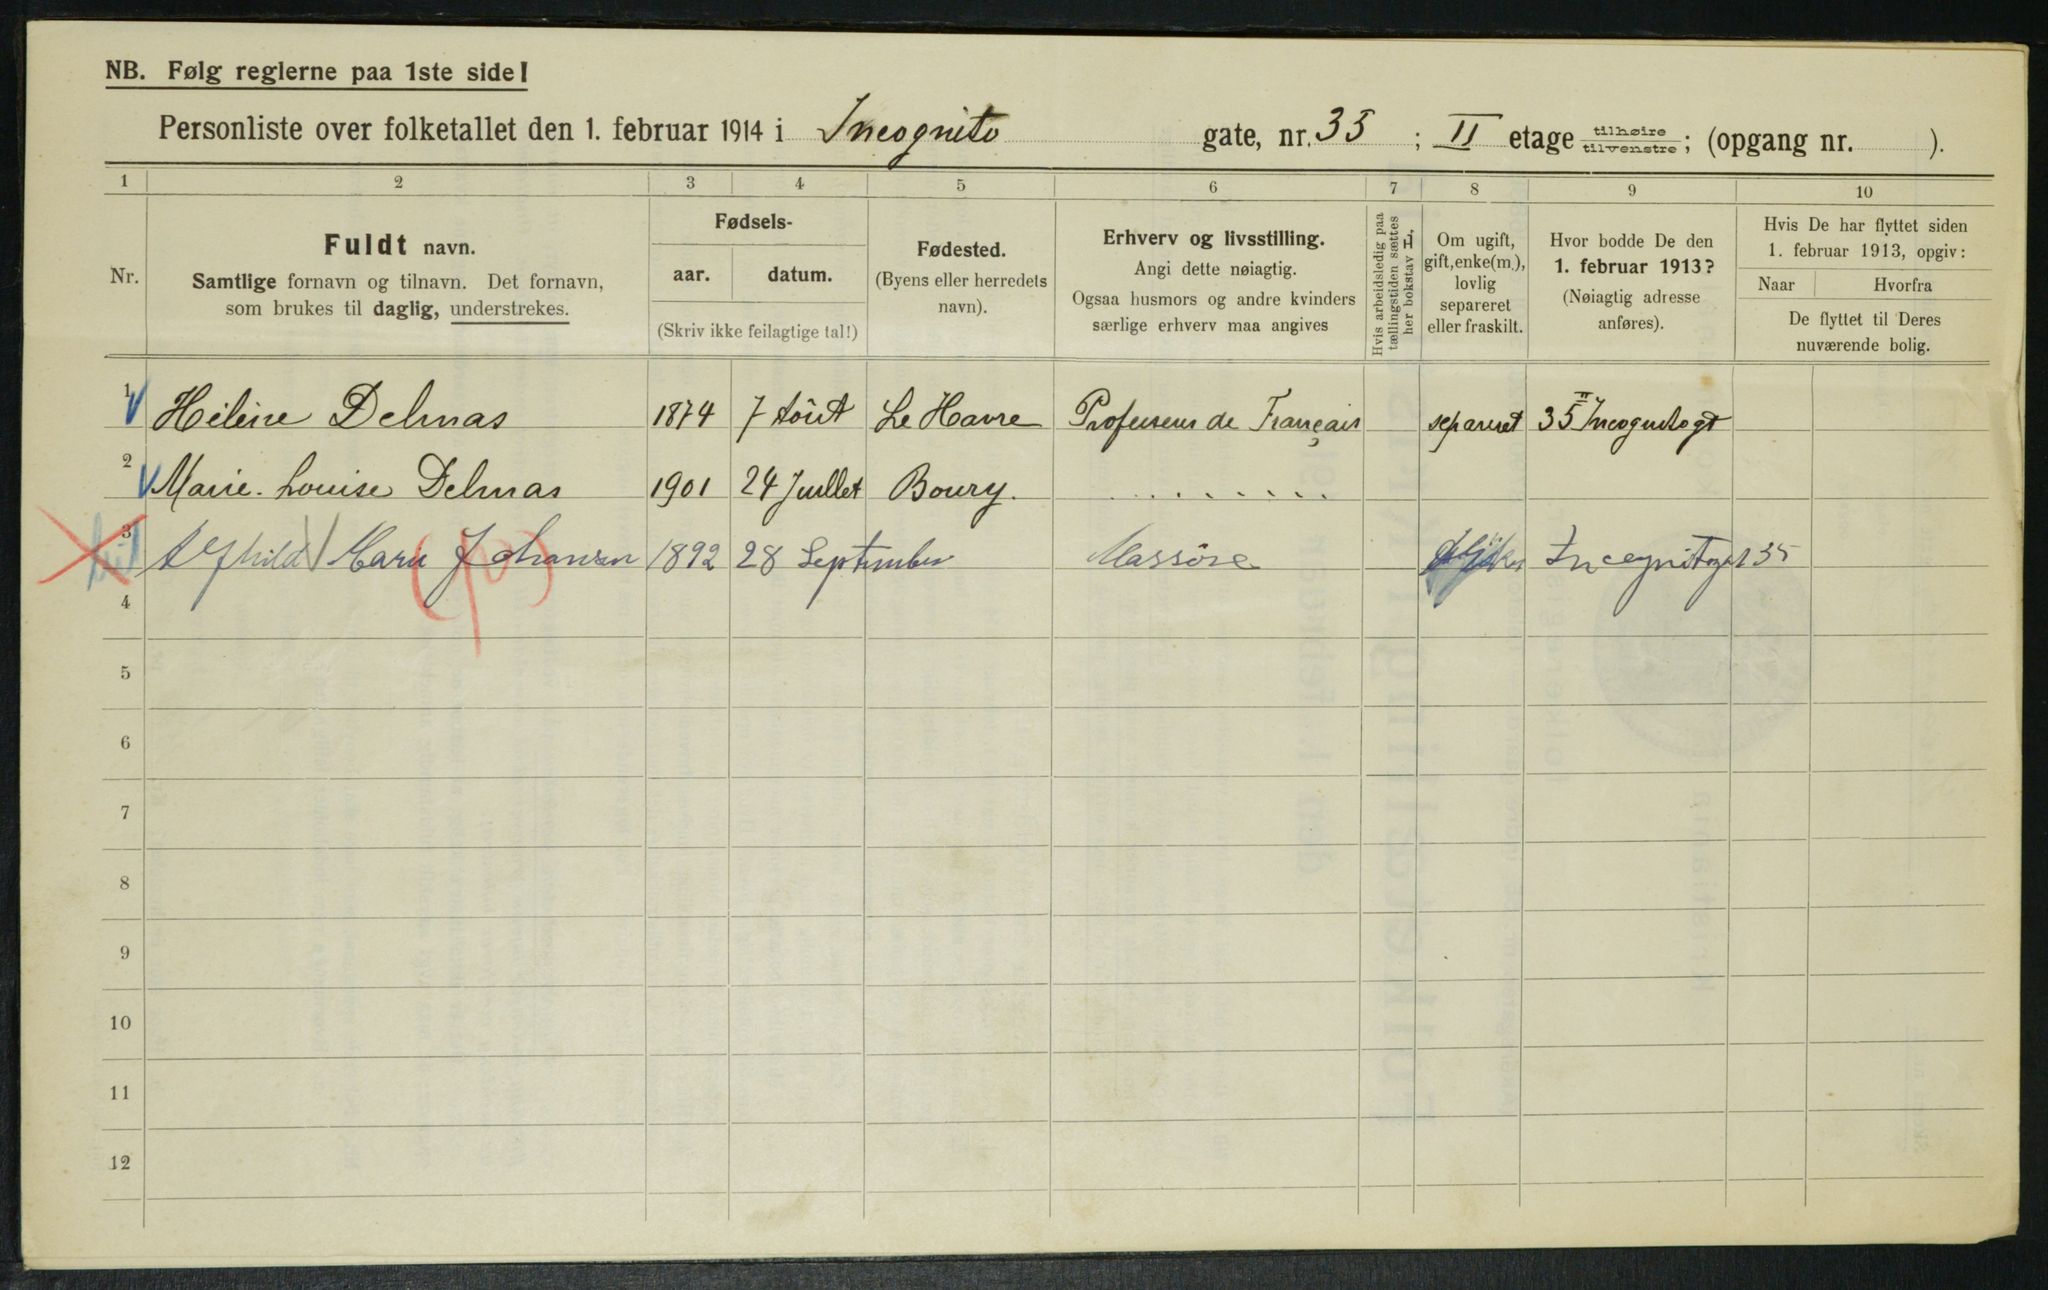 NB. Følg reglerne paa 1ste side!
Personliste over folketallet den 1. februar 1914 i Incognito gate, nr. 35 ; II etage tilhøire tilvenstre; (opgang nr. ).
1 2 3 4 5 6 7 8 9 10
Nr.
Fuldt navn.
Samtlige fornavn og tilnavn. Det fornavn,
som brukes til daglig, understrekes.
Fødsels-
aar. datum.
(Skriv ikke feilagtige tal!)
Fødested.
(Byens eller herredets
navn).
Erhverv og livsstilling.
Angi dette nøiagtig.
Ogsaa husmors og andre kvinders
særlige erhverv maa angives
Hvis arbeidsledig paa
tællingstiden sættes
her bokstav L.
Om ugift,
gift, enke(m.),
lovlig
separeret
eller fraskilt.
Hvor bodde De den
1. februar 1913?
(Nøiagtig adresse
anføres).
Hvis De har flyttet siden
1. februar 1913, opgiv:
Naar Hvorfra
De flyttet til Deres
nuværende bolig.
1 Hélène Delmas 1874 7 Aôut Le Havre Professeur de Français separeret 35 II Incognitogt
2 Marie-Louise Delmas 1901 24 Juillet Boury. . . . . . . . . .
3 Alfhild Marie Johansen 1892 28 September Massöse Incognitogt 35
4
5
6
7
8
9
10
11
12